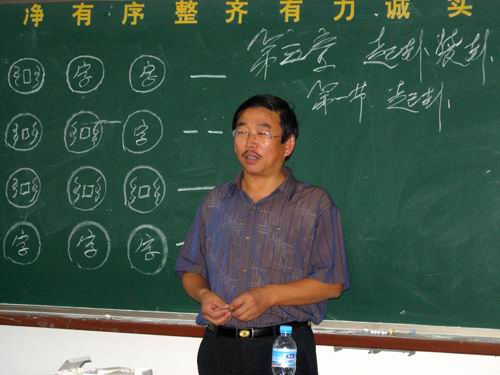 净有序 整齐有力 诚实
第五章 起卦装卦
第一节 起卦
字 字
字
字 字 字